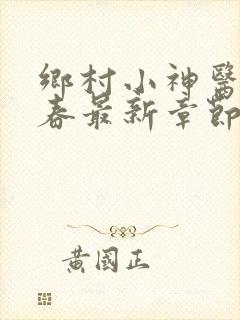 鄉村小神醫
春最新章節
黃國正